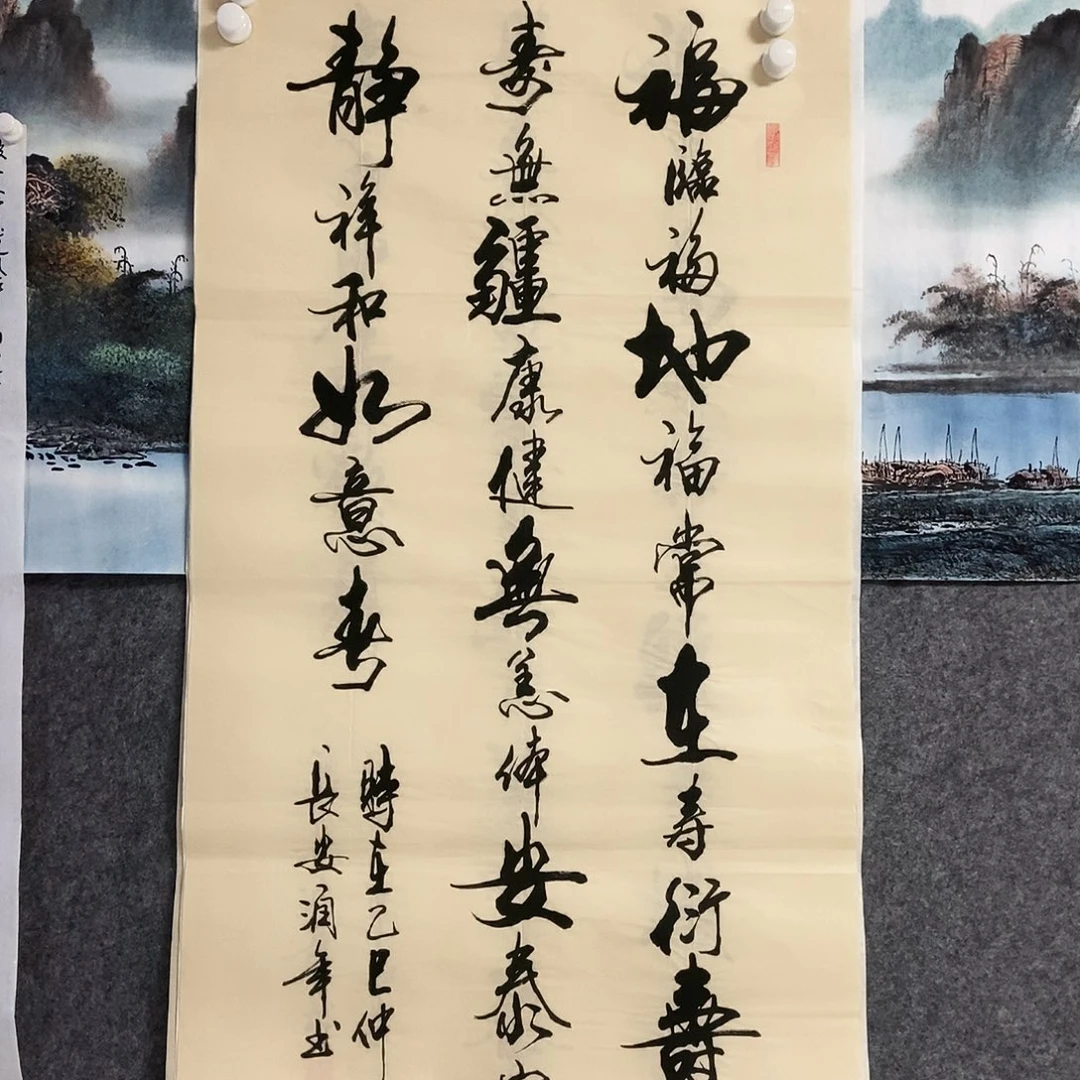 福臨福地福常在寿衍壽
寿無疆康健無恙体安泰
静祥和如意春
時在乙巳仲
長安润年书